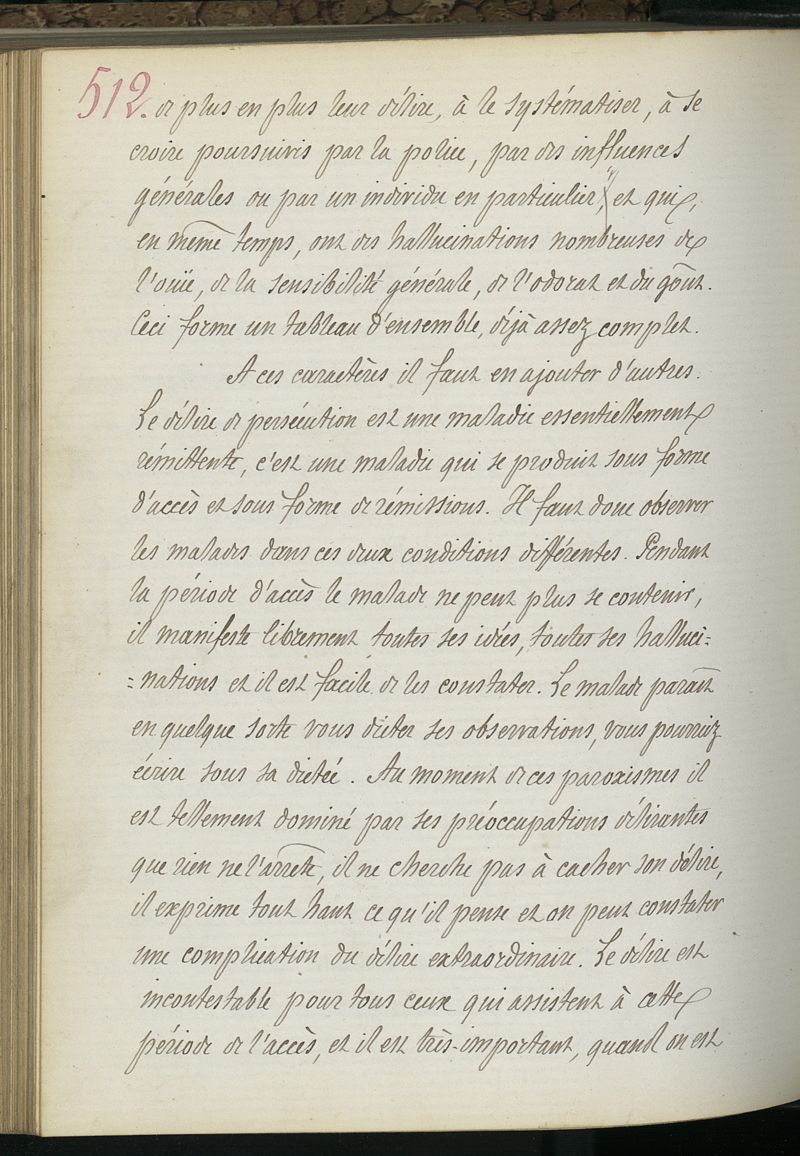 512. de plus en plus leur délire, à le systématiser, à se
croire poursuivis par la police, par des influences
générales ou par un individu en particulier, et qui,
en même temps, ont des hallucinations nombreuses de
l'ouïe, de la sensibilité générale, de l'odorat et du goût.
Ceci forme un tableau d'ensemble, déjà assez complet.
A ces caractères il faut en ajouter d'autres.
Le délire de persécution est une maladie essentiellement
rémittente, c'est une maladie qui se produit sous forme
d'accès et sous forme de rémissions. Il faut donc observer
les malades dans ces deux conditions différentes. Pendant
la période d'accès le malade ne peut plus se contenir,
il manifeste librement toutes ses idées, toutes ses halluci=
=nations et il est facile de les constater. Le malade paraît
en quelque sorte vous dicter ses observations, vous pourriez
écrire sous sa dictée. Au moment de ces paroxismes il
est tellement dominé par ses préoccupations délirantes
que rien ne l'arrête, il ne cherche pas à cacher son délire,
il exprime tout haut ce qu'il pense et on peut constater
une complication du délire extraordinaire. Le délire est
incontestable pour tous ceux qui assistent à cette
période de l'accès, et il est très-important, quand on est